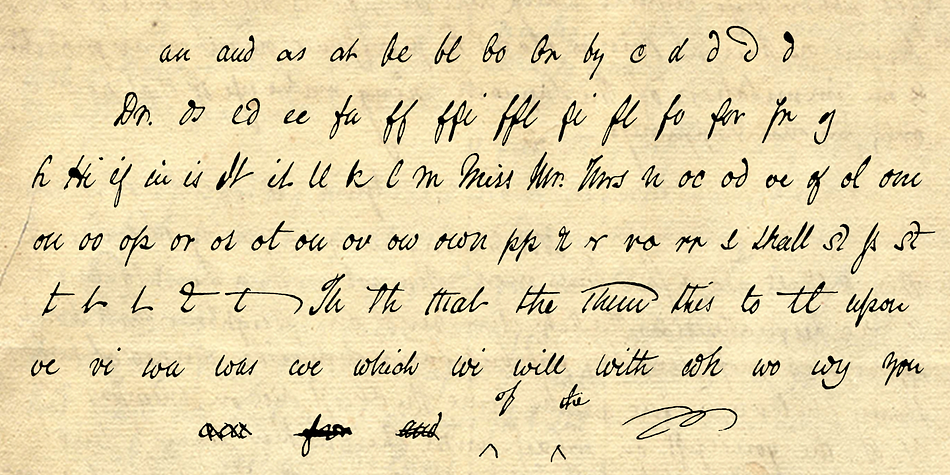 an and as at be bl bo br by c d d d d
Dr. ds ed ee fa ff ffi ffl fi fl fo for fr g
h Hi if in is It it ll k l m Miss Mr. Mrs n oc od oe of ol om
on oo op or os ot ou ov ow own pp r ro rr s shall st ss st
t t t t t Th Th th that the them this to tt upon
ve vi wa was we which wi will with wh wo wy you
of the
are for and ^ ^